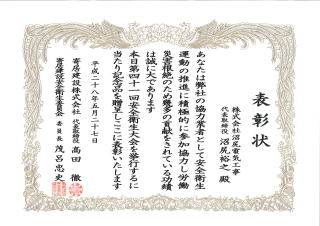 表彰状
株式会社沼尻電気工事
代表取締役 沼尻裕之 殿
あなたは弊社の協力業者として安全衛生
運動の推進に積極的に参加協力し労働
災害根絶のため幾多の貢献をされている功績
は誠に大であります
本日第四十一回安全衛生大会を挙行するに
当たり記念品を贈呈しここに表彰いたします
平成二十八年五月二十七日
寄居建設株式会社 代表取締役 高田 徹
寄居建設安全衛生委員会 委員長 茂呂忠史